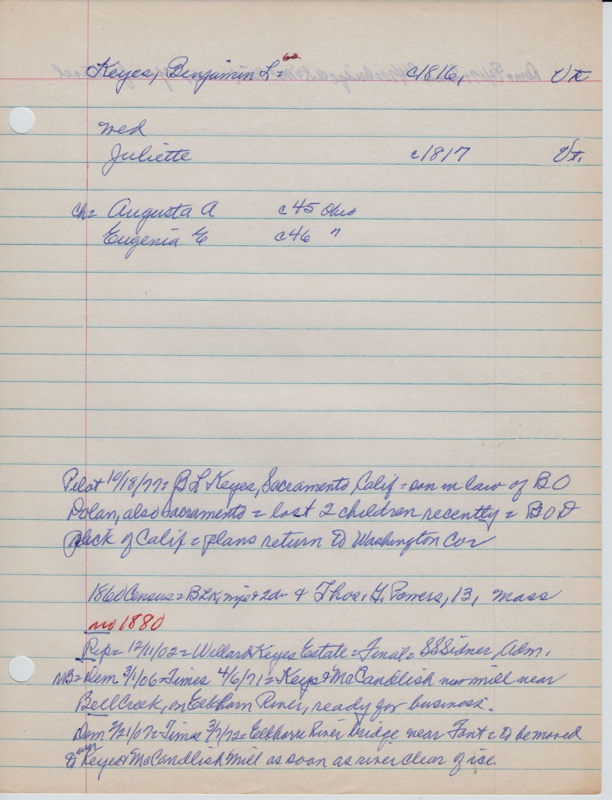 Keyes, Benjamin L = c1816, Vt
wed
Juliette c1817 Vt.
Ch = Augusta A c45 Ohio
Eugenia E c46 "
Pilot 10/18/77 = B L Keyes, Sacramento, Calif = son in law of B O
Dolan, also Sacramento = lost 2 children recently = B O D
sick of Calif = plans return to Washington Co =
1860 Census = B L K, wife & 2d - & Thos. G. Powers, 13, Mass
no 1880
Rep = 12/11/02 = Willard Keyes Estate = Final = Sidner, adm.
NB = Dem 3/1/06 = Times 4/6/71 = Keyes & McCandlish new mill near
Bell Creek, on Elkhorn River, ready for business.
Dem 2/21/07 = Times 3/7/72 = Elkhorn River Bridge near Font = to be moved
to Keyes & McCandlish Mill as soon as river clear of ice.